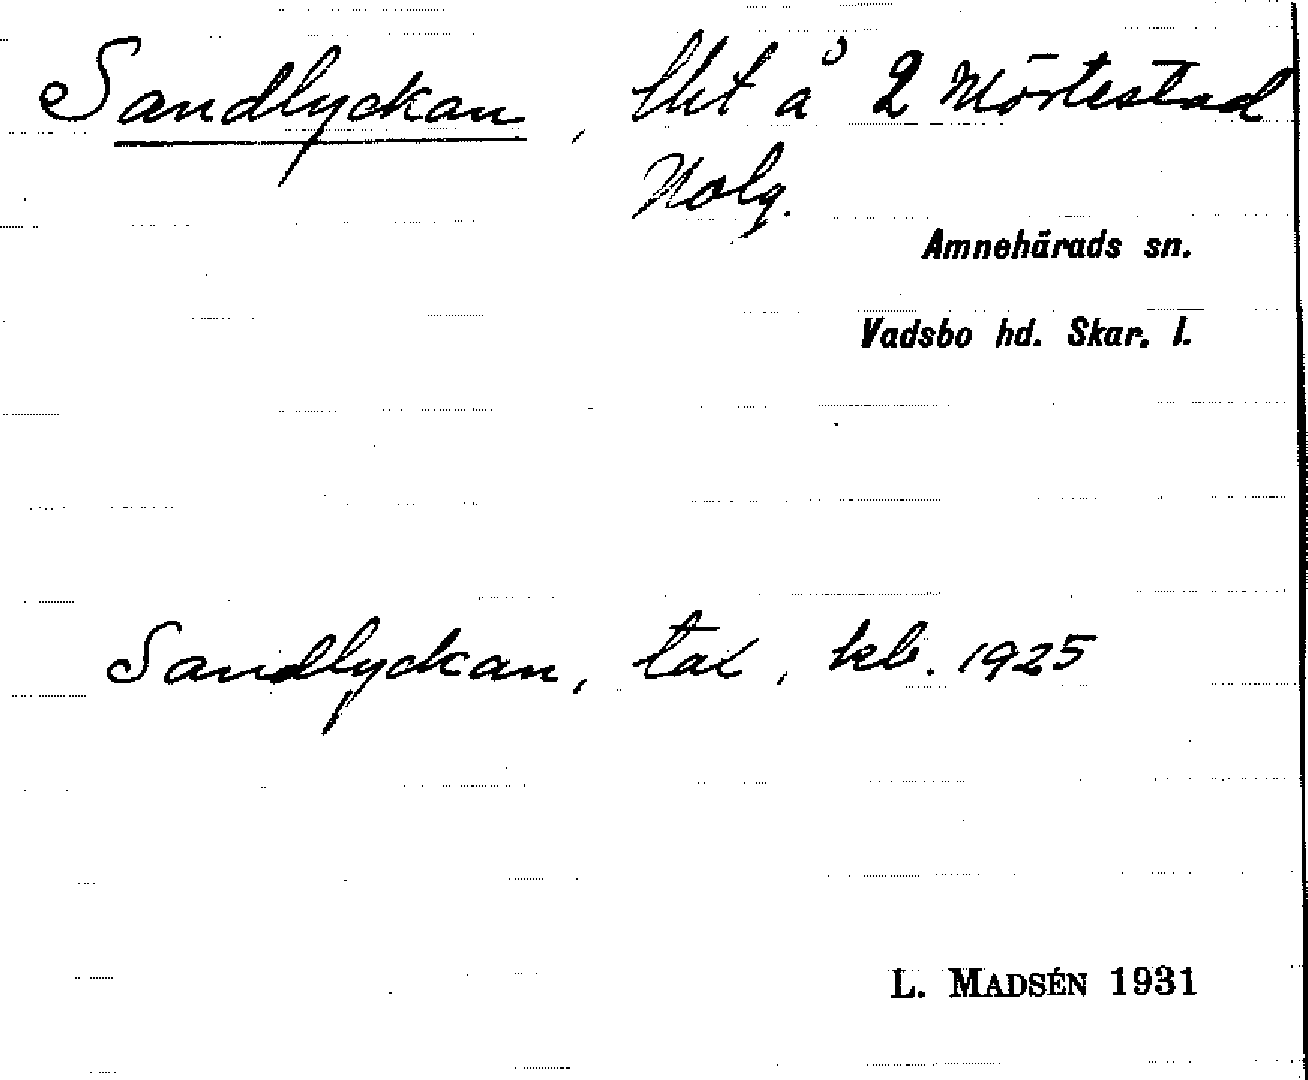 Sandlyckan, lht å 2 Mörtestad
Holg.
Amnehärads sn.
Vadsbo hd. Skar. l.
Sandlyckan, tax, kb. 1925
L. MADSÉN 1931